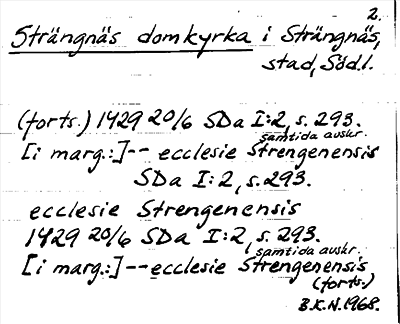 2.
Strängnäs domkyrka i Strängnäs,
stad, Södl.
(forts.) 1429 20/6 SDa I:2, s. 293.
samtida avskr.
[i marg.:] -- ecclesie Strengenensis
SDa I:2, s. 293.
ecclesie Strengenensis
1429 20/6 SDa I:2, s. 293.
samtida avskr.
[i marg.:] -- ecclesie Strengenensis
(forts.)
B.K.N. 1968.